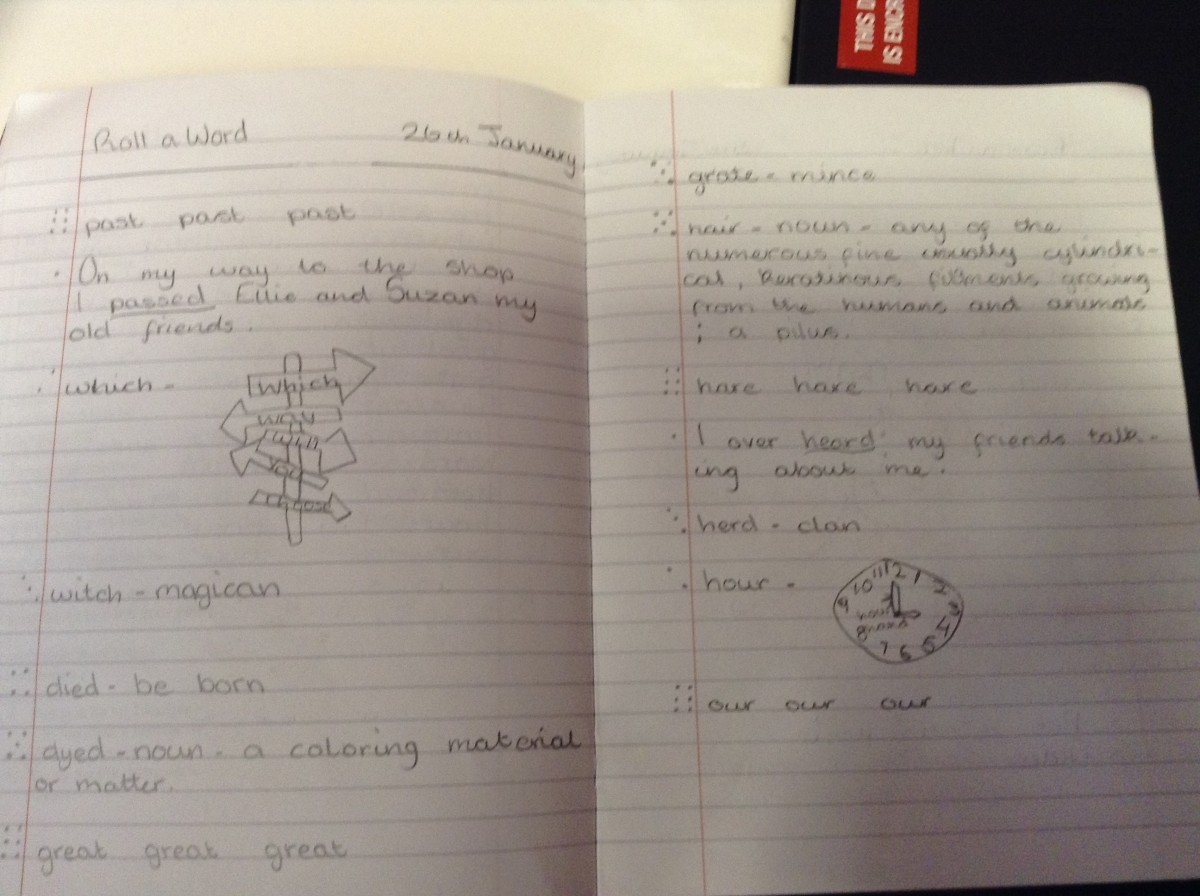 Roll a Word 26th January
past past past
On my way to the shop
I passed Ellie and Suzan my
old friends.
which -
which
way
will
you
choose
witch - magican
died - be born
dyed - noun - a coloring material
or matter.
great great great
THIS D
IS ENCR
grate - mince
hair - noun - any of the
numerous fine usually cylindri-
cal, keratinous filments growing
from the humans and animals
; a pilus.
hare hare hare
I over heard my friends talk-
ing about me.
herd - clan
hour -
12 1 2 3 4 5 6 7 9 10 11
hour
our our our